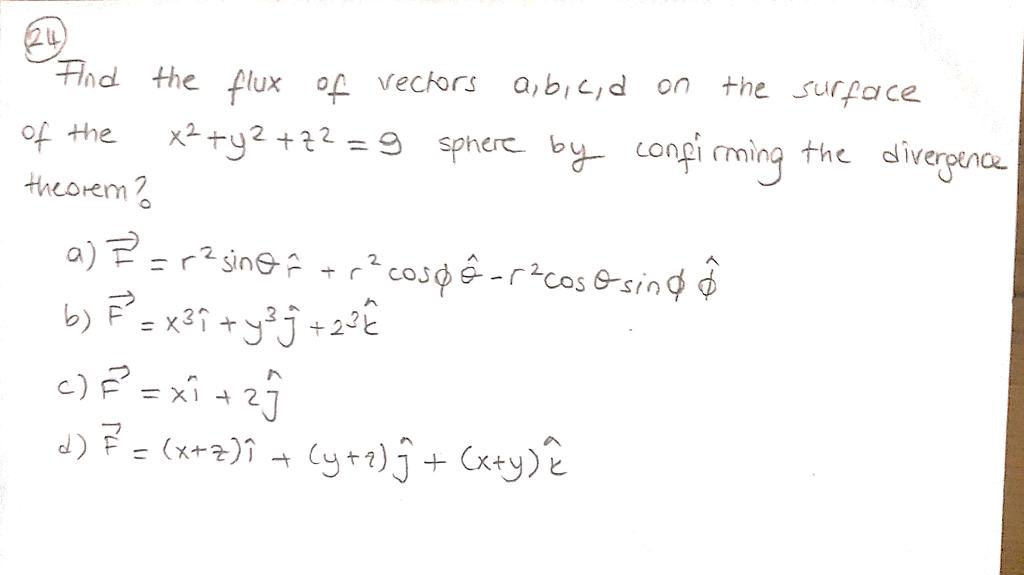 24
Find the flux of vectors a,b,c,d on the surface
of the x²+y²+z²=9 sphere by confirming the divergence
theorem?
a) F⃗ = r²sinθ r̂ + r²cosϕ θ̂ - r²cosθsinϕ ϕ̂
b) F⃗ = x³î + y³ĵ + z³k̂
c) F⃗ = xî + zĵ
d) F⃗ = (x+z)î + (y+z)ĵ + (x+y)k̂